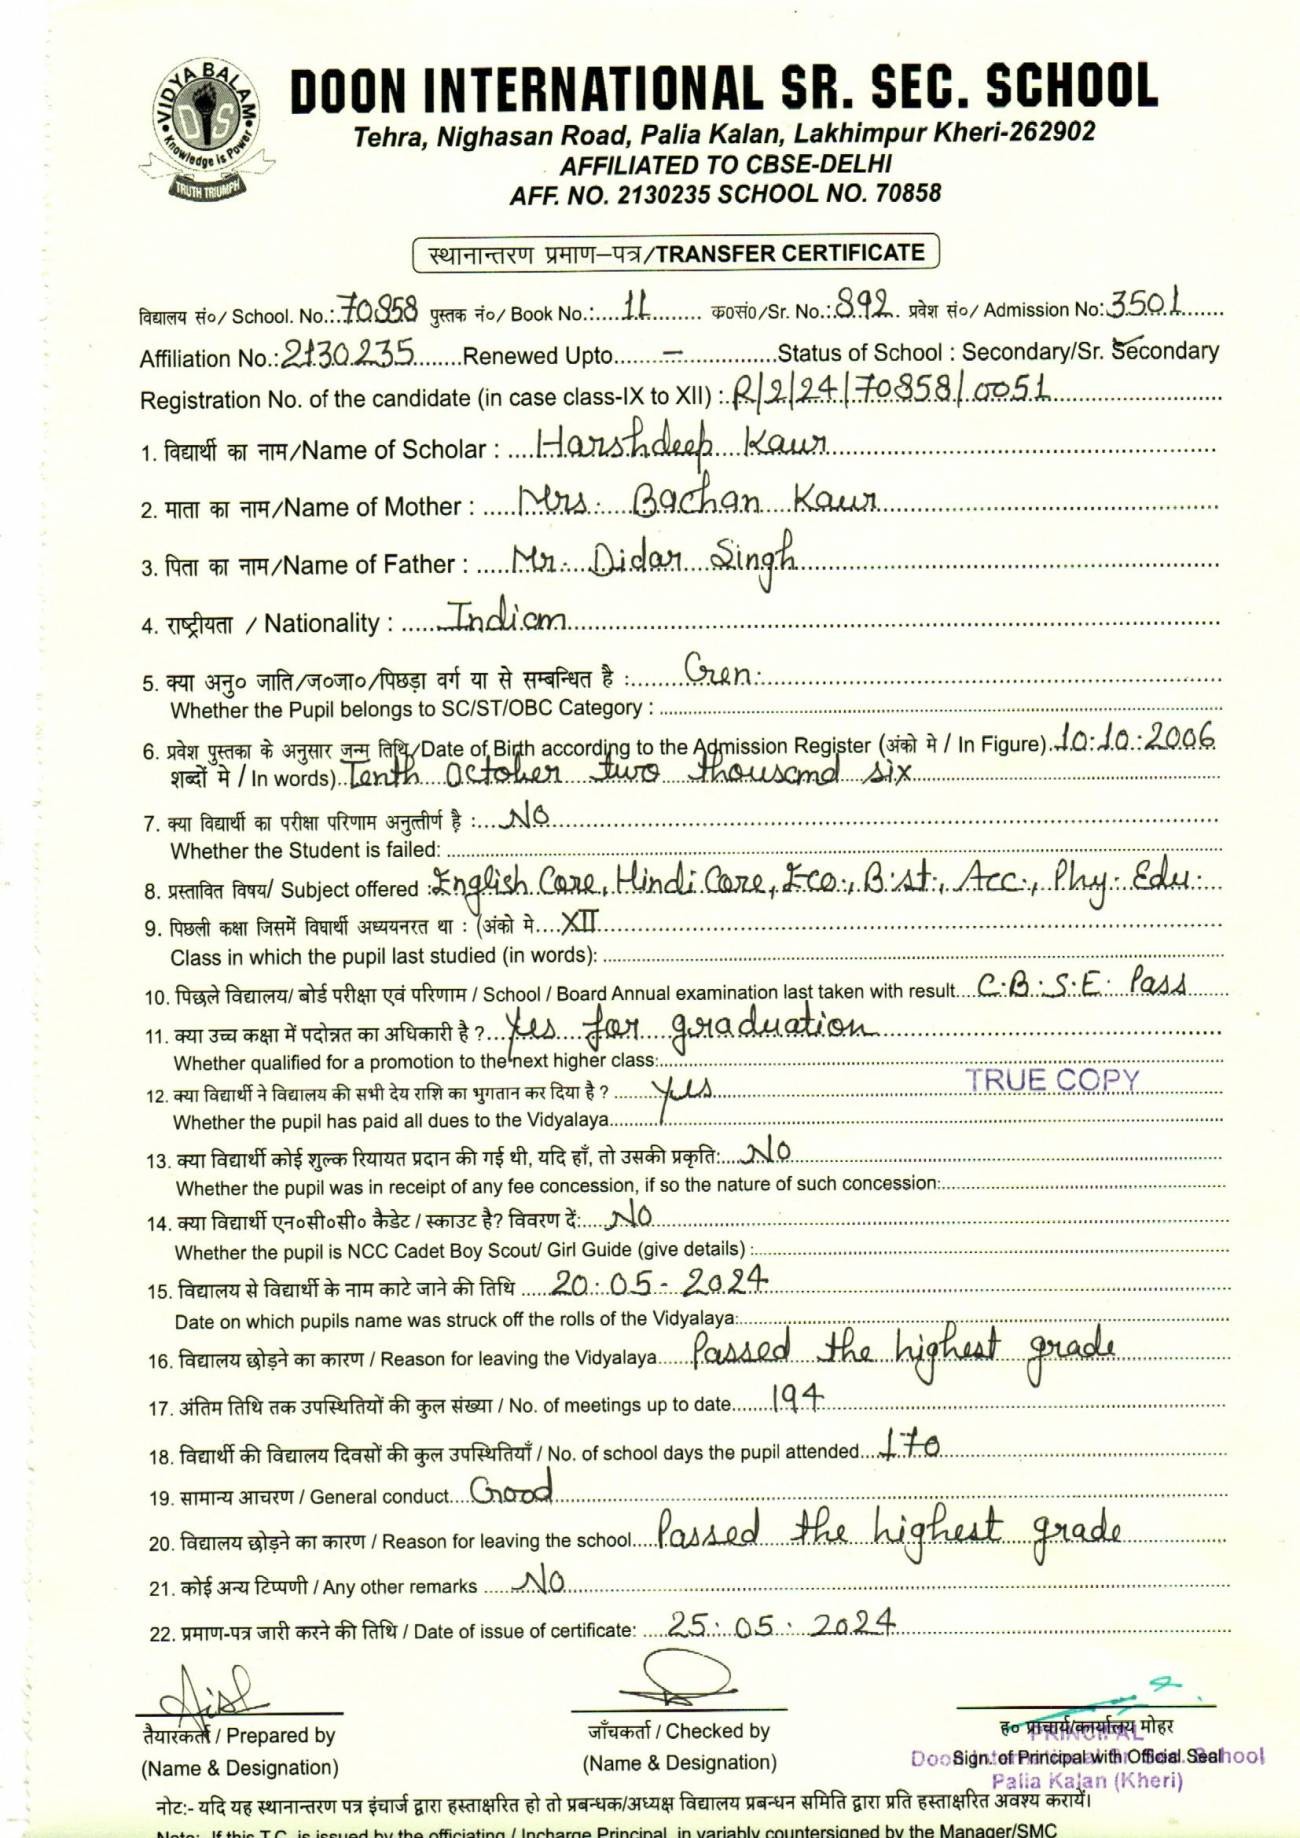 VIDYA BALAM
DIS
Knowledge is Power
TRUTH TRIUMPH
DOON INTERNATIONAL SR. SEC. SCHOOL
Tehra, Nighasan Road, Palia Kalan, Lakhimpur Kheri-262902
AFFILIATED TO CBSE-DELHI
AFF. NO. 2130235 SCHOOL NO. 70858
स्थानान्तरण प्रमाण–पत्र/TRANSFER CERTIFICATE
विद्यालय सं०/ School. No.:.70858 पुस्तक नं०/ Book No.:....11........ क०सं०/Sr. No.:.892. प्रवेश सं०/ Admission No:.3501......
Affiliation No.:2130235.......Renewed Upto.......–..............Status of School : Secondary/Sr. Secondary
Registration No. of the candidate (in case class-IX to XII) :.R/2/24/70858/0051
1. विद्यार्थी का नाम/Name of Scholar : ....Harshdeep Kaur
2. माता का नाम/Name of Mother : .....Mrs. Bachan Kaur
3. पिता का नाम/Name of Father : .....Mr. Didar Singh
4. राष्ट्रीयता / Nationality : ......Indian
5. क्या अनु० जाति/ज०जा०/पिछड़ा वर्ग या से सम्बन्धित है :........Gen.
Whether the Pupil belongs to SC/ST/OBC Category :
6. प्रवेश पुस्तका के अनुसार जन्म तिथि/Date of Birth according to the Admission Register (अंको मे / In Figure).10.10.2006
शब्दों मे / In words)..Tenth October two thousand six
7. क्या विद्यार्थी का परीक्षा परिणाम अनुत्तीर्ण है :....No
Whether the Student is failed:
8. प्रस्तावित विषय/ Subject offered :English Core, Hindi Core, Eco., B.st., Acc., Phy. Edu.
9. पिछली कक्षा जिसमें विधार्थी अध्ययनरत था : (अंको मे....XII
Class in which the pupil last studied (in words):
10. पिछले विद्यालय/ बोर्ड परीक्षा एवं परिणाम / School / Board Annual examination last taken with result....C.B.S.E. Pass
11. क्या उच्च कक्षा में पदोन्नत का अधिकारी है ?...Yes for graduation
Whether qualified for a promotion to the next higher class:
TRUE COPY
12. क्या विद्यार्थी ने विद्यालय की सभी देय राशि का भुगतान कर दिया है ? ........Yes
Whether the pupil has paid all dues to the Vidyalaya
13. क्या विद्यार्थी कोई शुल्क रियायत प्रदान की गई थी, यदि हाँ, तो उसकी प्रकृति:....No
Whether the pupil was in receipt of any fee concession, if so the nature of such concession:
14. क्या विद्यार्थी एन०सी०सी० कैडेट / स्काउट है? विवरण दें:.....No
Whether the pupil is NCC Cadet Boy Scout/ Girl Guide (give details) :
15. विद्यालय से विद्यार्थी के नाम काटे जाने की तिथि .....20.05-2024
Date on which pupils name was struck off the rolls of the Vidyalaya:
16. विद्यालय छोड़ने का कारण / Reason for leaving the Vidyalaya.....Passed the highest grade
17. अंतिम तिथि तक उपस्थितियों की कुल संख्या / No. of meetings up to date.......194
18. विद्यार्थी की विद्यालय दिवसों की कुल उपस्थितियाँ / No. of school days the pupil attended....170
19. सामान्य आचरण / General conduct....Good
20. विद्यालय छोड़ने का कारण / Reason for leaving the school....Passed the highest grade
21. कोई अन्य टिप्पणी / Any other remarks ......No
22. प्रमाण-पत्र जारी करने की तिथि / Date of issue of certificate: .....25.05.2024
तैयारकर्ता / Prepared by जाँचकर्ता / Checked by ह० प्राचार्य/कार्यालय मोहर
PRINCIPAL
(Name & Designation) (Name & Designation) Sign. of Principal with Official Seal
Palia Kalan (Kheri)
नोटः- यदि यह स्थानान्तरण पत्र इंचार्ज द्वारा हस्ताक्षरित हो तो प्रबन्धक/अध्यक्ष विद्यालय प्रबन्धन समिति द्वारा प्रति हस्ताक्षरित अवश्य करायें।
Note:- If this T.C. is issued by the officiating / Incharge Principal, in variably countersigned by the Manager/SMC